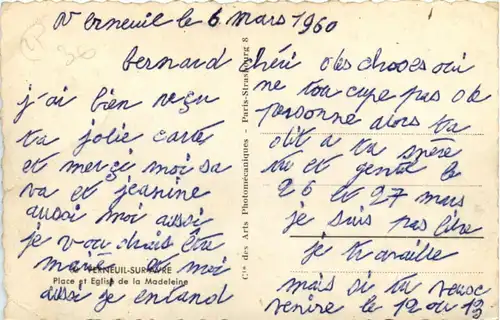 Verneuil le 6 mars 1960
bernard chéri
j'ai bien reçu
ta jolie carte
et merçi moi sa
va et jeanine
aussi moi aussi
je voudrais être
mariée et moi
aussi je entand
VERNEUIL-SUR-AVRE
Place et Eglise de la Madeleine
Cie des Arts Photomécaniques - Paris-Strasbourg 8
des choses oui
ne tocupe pas de
personne alors ta
dit a ta mère
tu et gentil le
26 et 27 mars
je suis pas libre
je travaille
mais si tu veux
venire le 12 ou 13